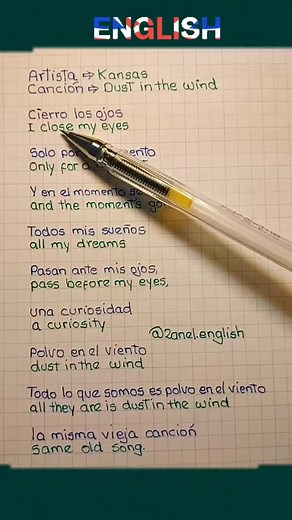 ENGLISH
Artista ⇨ Kansas
Canción ⇨ Dust in the wind
Cierro los ojos
I close my eyes
Solo por
Only for a
Y en el momento
and the moments
Todos mis sueños
all my dreams
Pasan ante mis ojos,
pass before my eyes,
una curiosidad
a curiosity
@2anel.english
polvo en el viento
dust in the wind
Todo lo que somos es polvo en el viento
all they are is dust in the wind
la misma vieja canción
same old song.